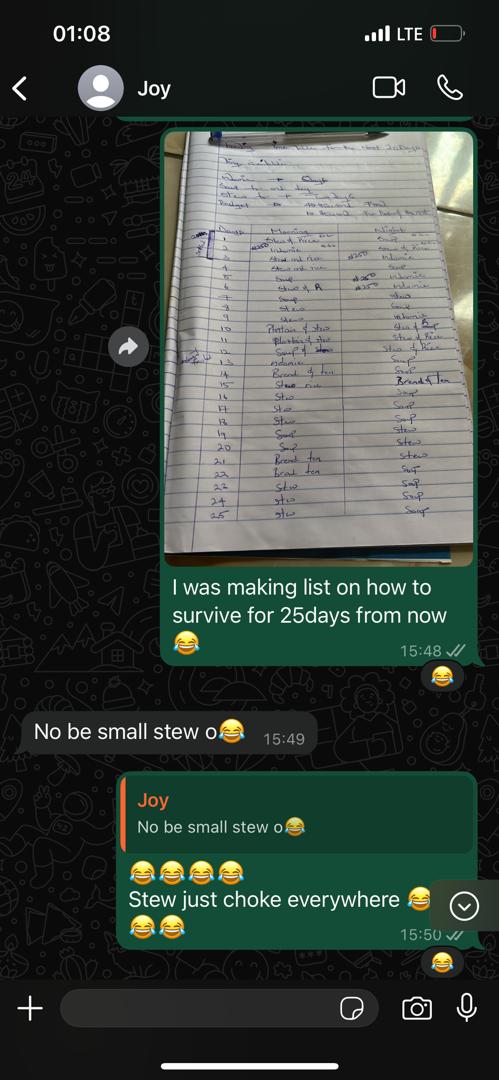 01:08
LTE
Joy
Days Morning Night
1 Stew & Rice Soup
2 #250 Indomie
3 Stew and rice #250 Indomie
4 Stew and rice Soup
5 Soup #250 Indomie
6 Stew & R #250 Indomie
7 Soup Stew
8 Stew Soup
9 Stew Indomie
10 Plantain & stew Stew &
11 Plantain & stew Stew & Rice
12 Soup & Stew & Rice
13 Indomie Soup
14 Bread & tea Soup
15 Stew rice Bread & tea
16 Stew Soup
17 Stew Soup
18 Stew Soup
19 Soup Stew
20 Soup Stew
21 Bread tea Stew
22 bread tea Soup
23 Stew Soup
24 stew Soup
25 stew Soup
I was making list on how to
survive for 25days from now
😂
15:48
😂
No be small stew o😂 15:49
Joy
No be small stew o😂
😂😂😂😂
Stew just choke everywhere 😂
😂😂
15:50
😂